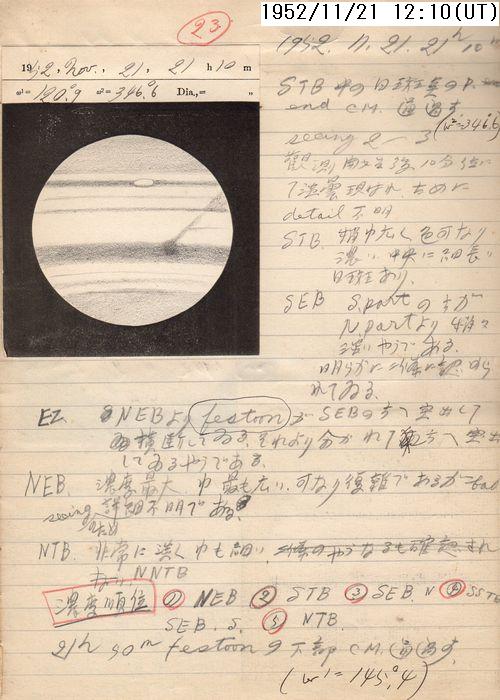 1952/11/21 12:10(UT)
23
1952, Nov., 21, 21 h 10 m
ω¹= 120.°9 ω²= 346.°6 Dia.,= "
1952. 11. 21. 21h 10m
STB 中の白斑真の P.
end C.M. 通過す
(W²=346.6)
seeing 2 — 3
観測開始後10分位に
て 薄雲現はれ ために
detail 不明
STB. 稍巾広く色可なり
濃い 中央に細長い
白斑あり.
SEB S. part の方が
N. part より 稍々
濃いやうである.
明らかに
れてゐる.
EZ NEBより festoon が SEBの方へ突出して
横断してゐる. それより分かれて 方へ突出
してゐるやうである.
NEB. 濃度最大. 巾最も広い. 可なり復雑であるが bad
seeing のため 詳細不明である.
NTB. 非常に淡く巾も細い. のやうなるも確認され
ない NNTB
濃度順位 ① NEB ② STB ③ SEB. N ④ SSTB
SEB. S. ⑤ NTB.
21h 50m festoon の 下部 C.M. 通過す.
(W¹=145.°4)